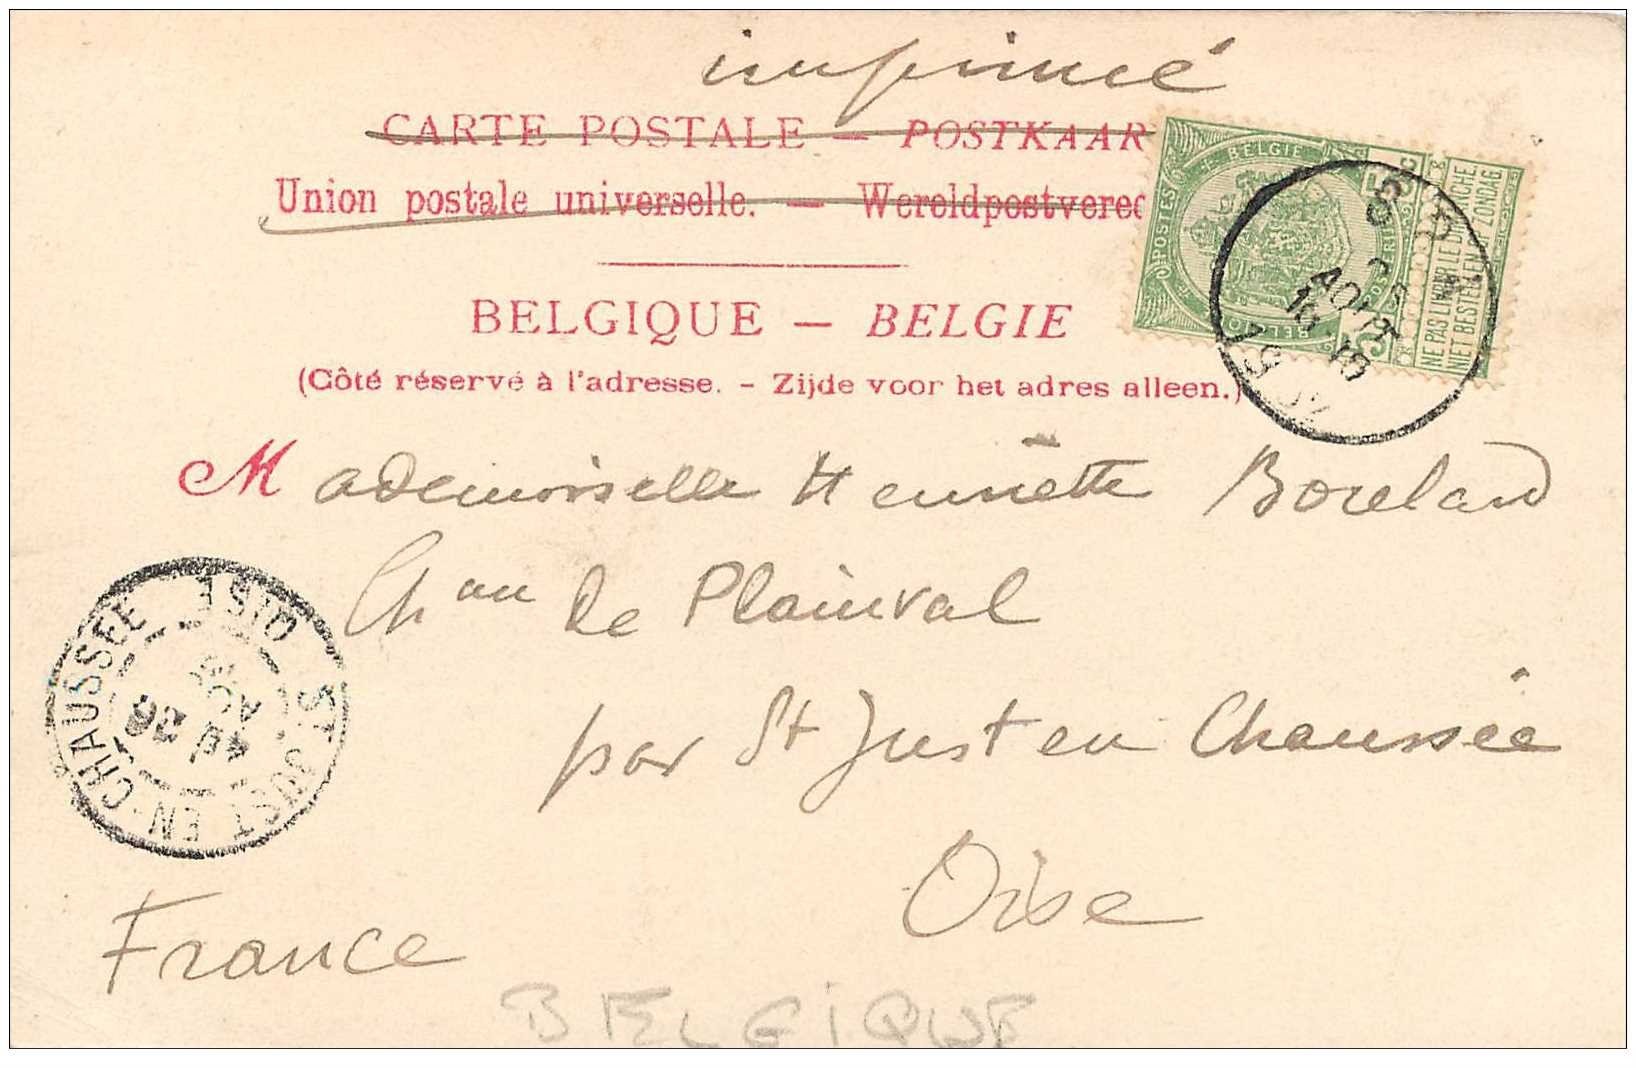 imprimé
CARTE POSTALE — POSTKAAR
Union postale universelle. — Wereldpostveree
BELGIQUE — BELGIE
(Côté réservé à l'adresse. - Zijde voor het adres alleen.)
POSTES
BELGIE
POSTERIJEN
BELGIQUE
NE PAS LIVRER LE DIMANCHE
NIET BESTELLEN OP ZONDAG
AOUT
Mademoiselle Henriette Borelard
Chau de Plainval
par St Just en Chaussée
Oise
France
ST JUST-EN-CHAUSSEE OISE
BELGIQUE